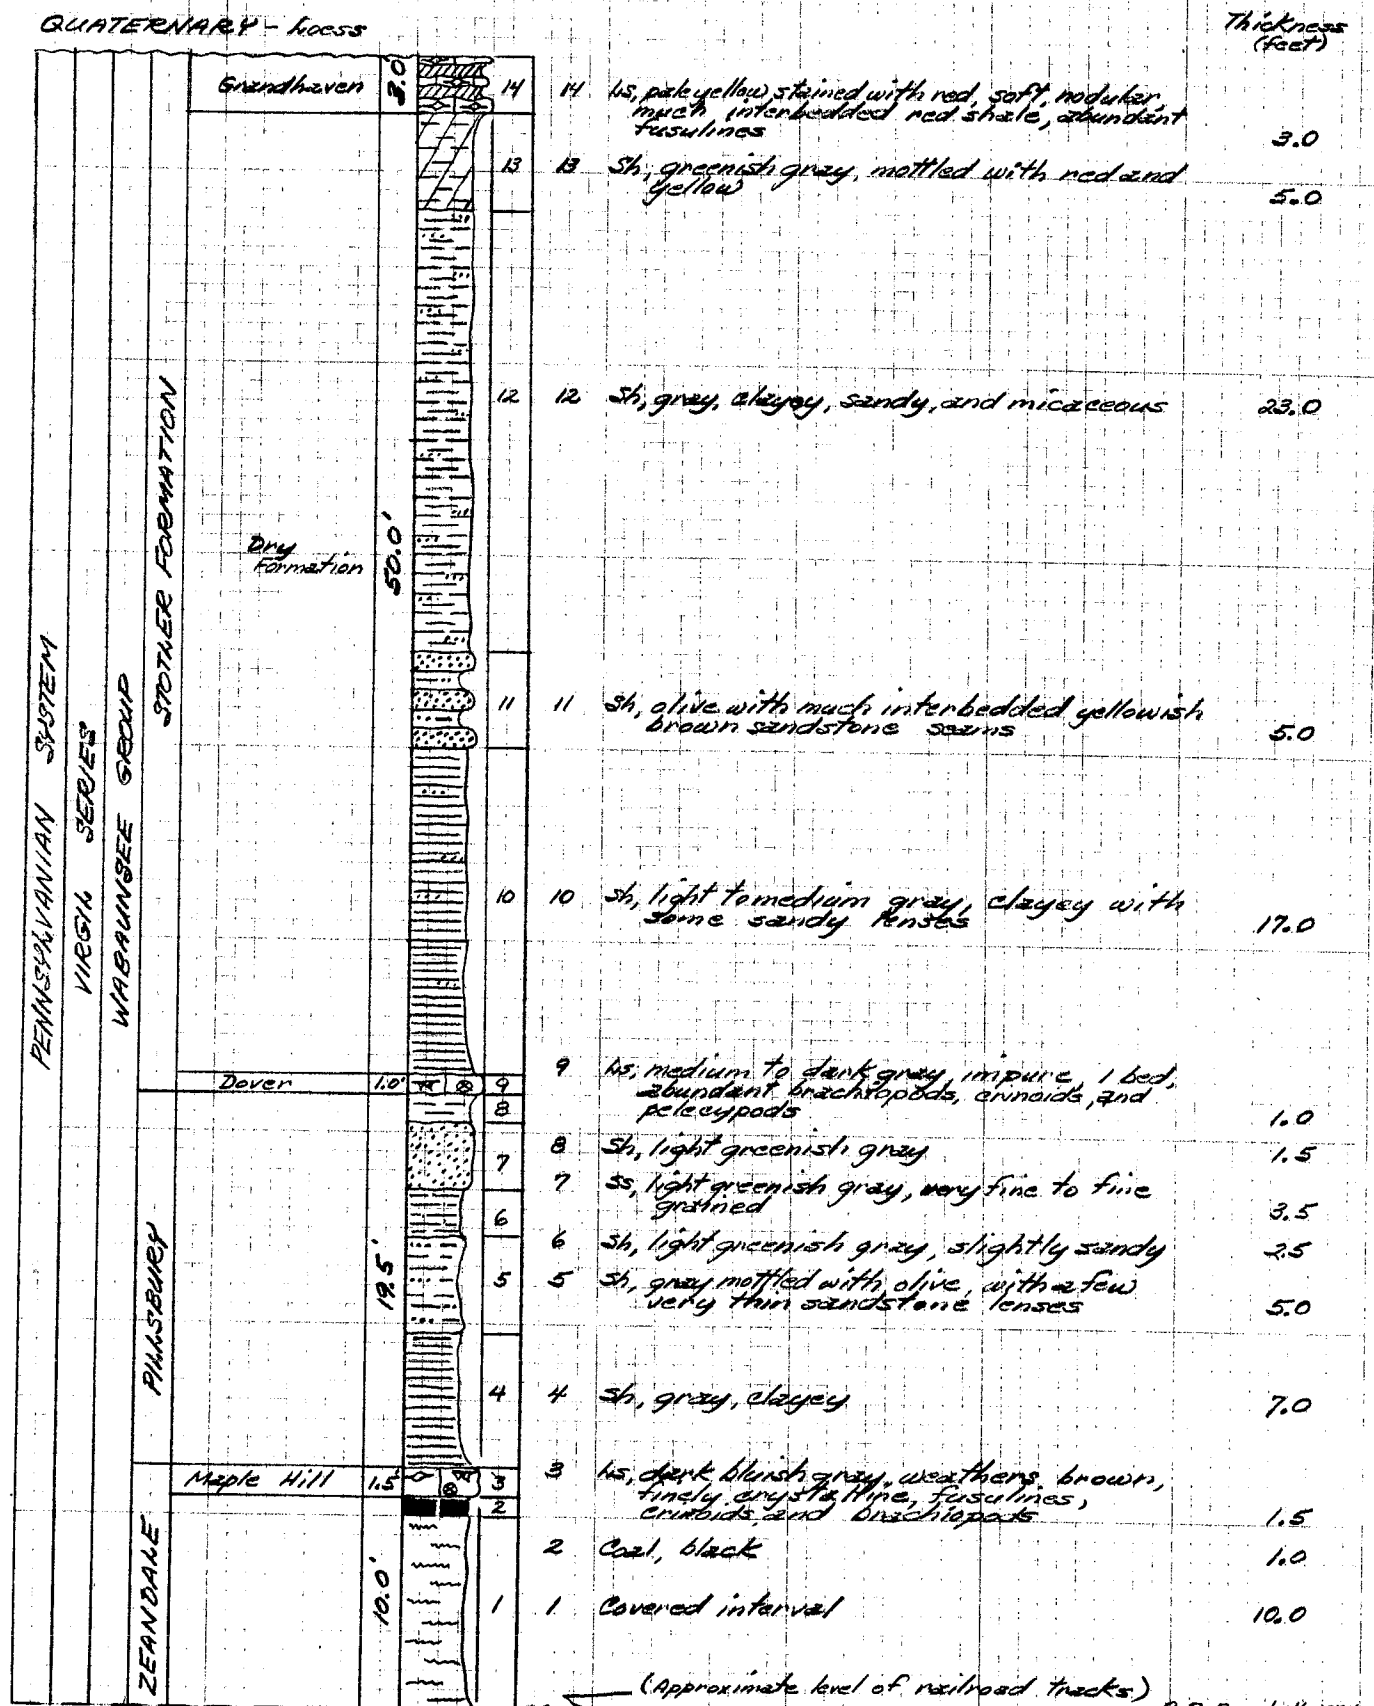 QUATERNARY - Loess
Thickness
(feet)
PENNSYLVANIAN SYSTEM
VIRGIL SERIES
WABAUNSEE GROUP
STOTLER FORMATION
PILLSBURY
ZEANDALE
Grandhaven 3.0'
Dry
Formation
50.0'
Dover 1.0'
19.5'
Maple Hill 1.5'
10.0'
14 14 Ls, pale yellow, stained with red, soft, nodular,
much interbedded red shale, abundant
fusulines
3.0
13 13 Sh, greenish gray, mottled with red and
yellow
5.0
12 12 Sh, gray, clayey, sandy, and micaceous 23.0
11 11 Sh, olive with much interbedded yellowish
brown sandstone seams 5.0
10 10 Sh, light to medium gray, clayey with
some sandy lenses 17.0
9 9 Ls, medium to dark gray, impure, 1 bed,
abundant brachiopods, crinoids, and
pelecypods 1.0
8 8 Sh, light greenish gray 1.5
7 7 Ss, light greenish gray, very fine to fine
grained 3.5
6 6 Sh, light greenish gray, slightly sandy 2.5
5 5 Sh, gray mottled with olive, with a few
very thin sandstone lenses 5.0
4 4 Sh, gray, clayey 7.0
3 3 Ls, dark bluish gray, weathers brown,
finely crystalline, fusulines,
crinoids, and brachiopods 1.5
2 2 Coal, black 1.0
1 1 Covered interval 10.0
(Approximate level of railroad tracks)